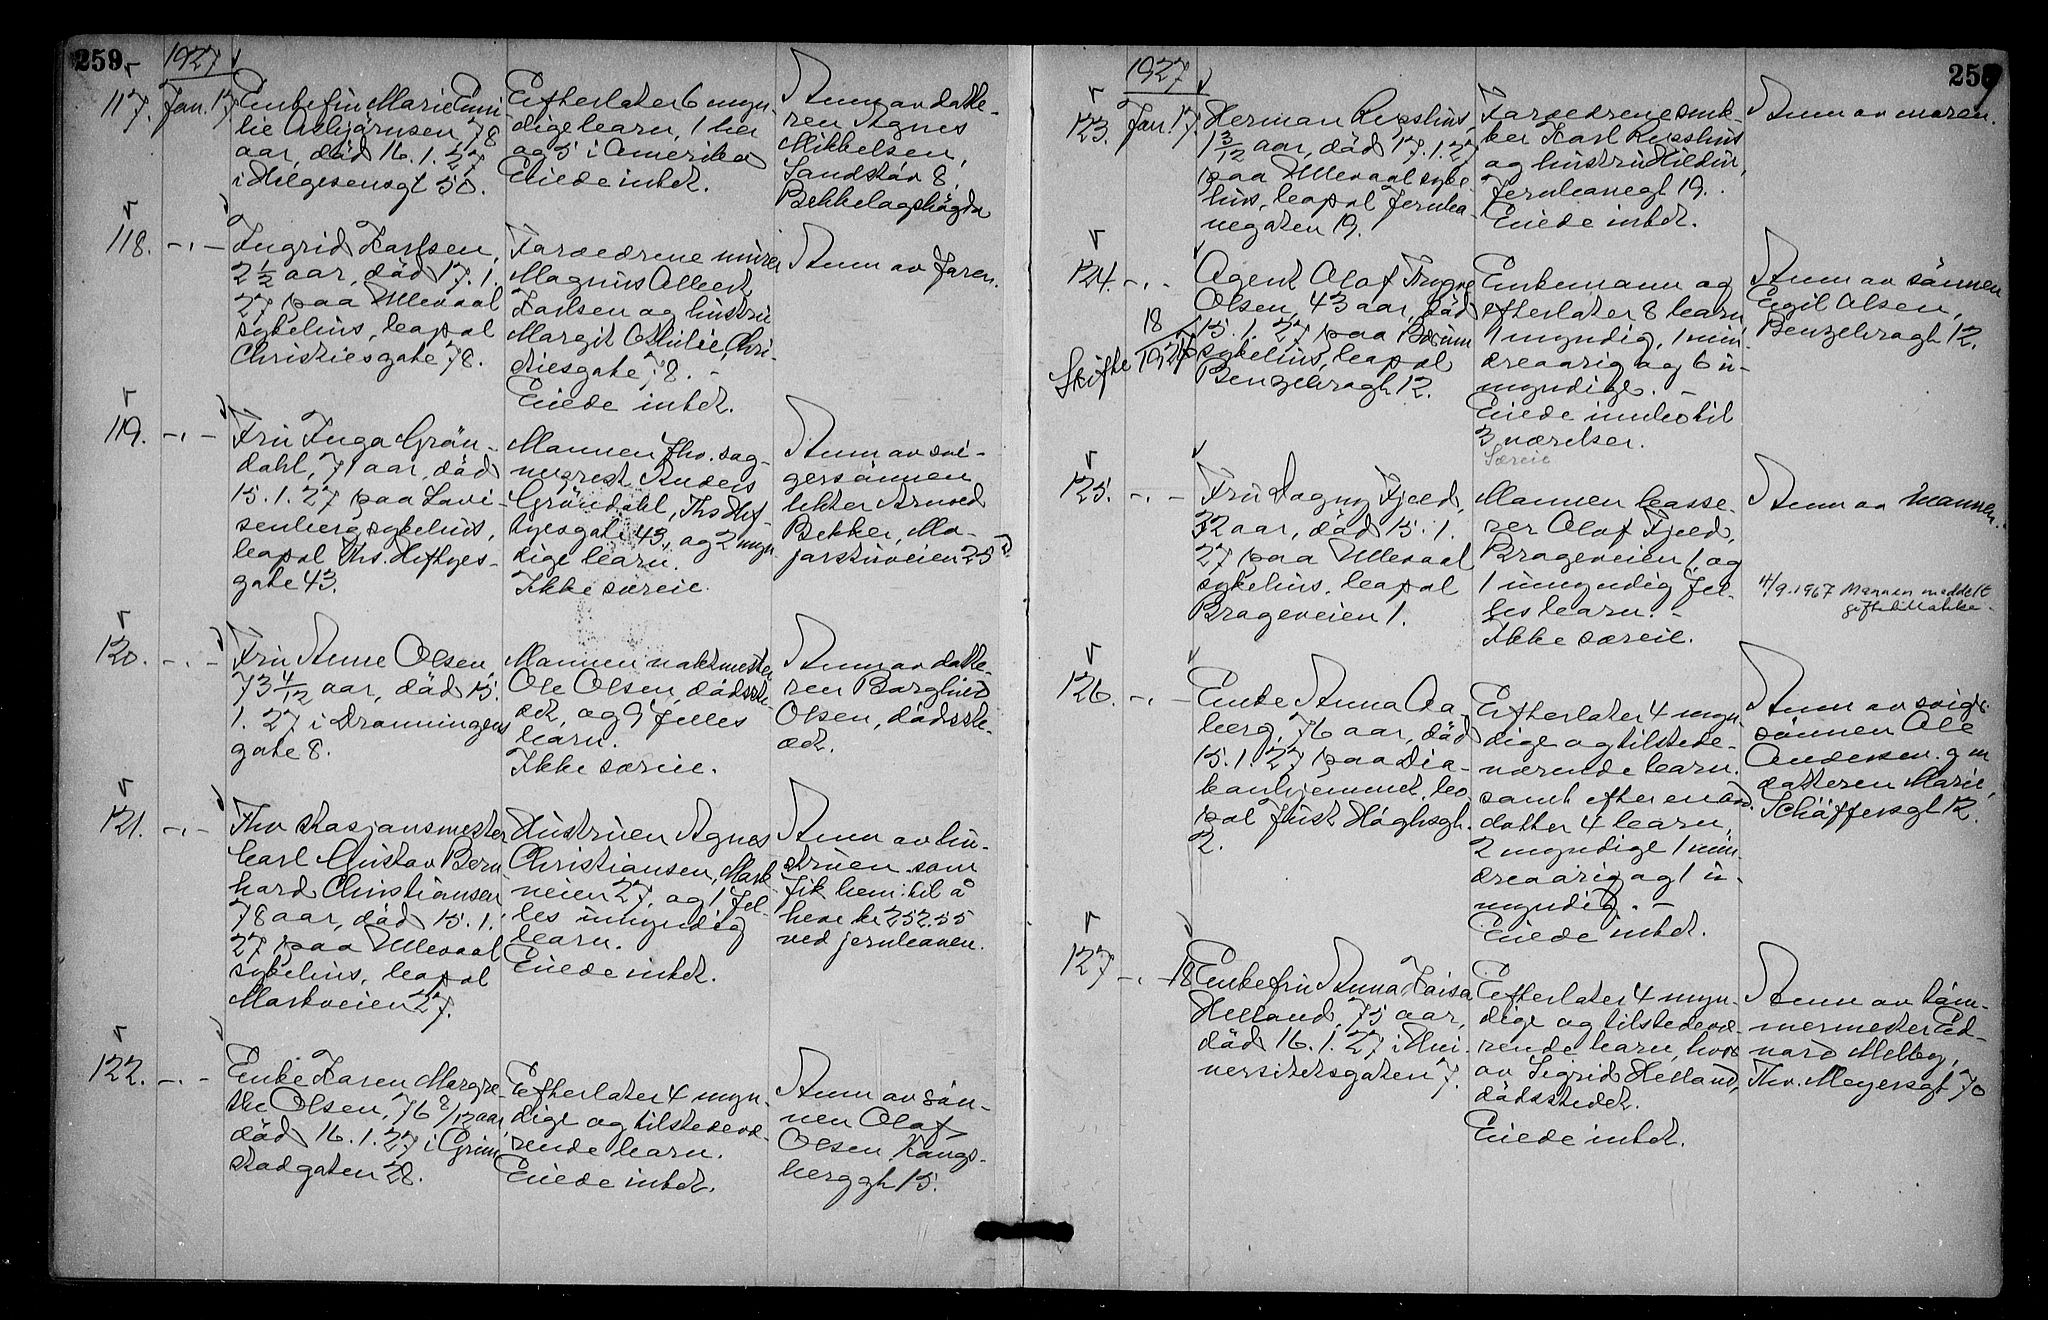 259
1927
117. Jan. 17
Enkefru Marie Emi-
lie Asbjørnsen, 78
aar, død 16.1.27
i Helgesensgt 50.
Efterlater 6 myn-
dige barn, 1 her
og 5 i Amerika
Eiede intet.
Anm av datte-
ren Agnes
Mikkelsen,
Sandstøv 8,
Bekkelagshøgda
118. -,-
Ingrid Karlsen,
2 1/2 aar, død 17.1.
27 paa Ullevaal
sykehus, bopæl
Christiesgate 78.
Forældrene murer
Magnus Albert
Karlsen og hustru
Margit Othilie, Chri-
stiesgate 78. -
Eiede intet.
Anm av faren.
119. -,-
Fru Inga Grøn-
dahl, 71 aar, død
15.1.27 paa Lovi-
senberg sykehus,
bopæl Ths. Heftyes-
gate 43.
Mannen fhv. sag-
mester Anders
Grøndahl, Ths Hef-
tyesgate 43, og 2 myn
dige barn.
Ikke særeie.
Anm av svi-
gersønnen
lektor Arnved
Bekker, Ma-
jorstuveien 25
120. -,-
Fru Anne Olsen,
73 4/12 aar, død 15.
1.27 i Dronningens
gate 8.
Mannen vaktmester
Ole Olsen, dødsste-
det, og 9 felles
barn.
Ikke særeie.
Anm av datte-
ren Borghild
Olsen, dødsste-
det.
121. -,-
Fhv stasjonsmester
Carl Gustav Bern
hard Christiansen
78 aar, død 15.1.
27 paa Ullevaal
sykehus, bopæl
Markveien 27.
Hustruen Agnes
Christiansen, Mark
veien 27, og 1 fel-
les umyndig
barn.
Eiede intet.
Anm av hu-
struen som
fik bem. til å
heve kr 252.55
ved jernbanen.
122. -,-
Enke Karen Margre
the Olsen, 76 2/12 aar,
død 16.1.27 i Grim
stadgaten 28.
Efterlater 4 myn-
dige og tilstedevæ-
rende barn.
Eiede intet.
Anm av søn-
nen Olaf
Olsen, Kongs-
berggt 15.
259
1927
123. Jan. 17.
Herman
1 3/12 aar, død 17.1.27
paa Ullevaal syke-
hus, bopæl Jernba-
negaten 19.
Forældrene snek-
ker Karl
og hustru Hildur,
Jernbanegt 19.
Eiede intet.
Anm av moren.
124. -,-
Skifte 18/ 1927
Agent Olaf Trygve
Olsen, 43 aar, død
15.1.27 paa Bærum
sykehus, bopæl
Benzelvragt 12.
Enkemann og
efterlater 8 barn
1 myndig, 1 min-
dreaarig og 6 u-
myndige. -
Eiede innbo til
3 værelser.
Anm av sønnen
Egil Olsen,
Benzelvragt 12.
125. -,-
Fru Dagny Fjeld,
32 aar, død 15.1.
27 paa Ullevaal
sykehus, bopæl
Brageveien 1.
Særeie
Mannen kasse-
rer Olaf Fjeld,
Brageveien 1, og
1 umyndig fel-
les barn. -
Ikke særeie.
Anm av mannen.
4/9.1967 Mannen meddelt
giftetillatelse.
126. -,-
Enke Anna Aa
berg, 76 aar, død
15.1.27 paa Dia-
konhjemmet, bo
pæl Just Høghsgt.
2.
Efterlater 4 myn-
dige og tilstede-
værende barn,
samt efter en død
datter 4 barn,
2 myndige 1 min-
dreaarig og 1 u-
myndig. -
Eiede intet.
Anm av sviger
sønnen Ole
Andersen. g m
datteren Marie,
Schäffersgt 12.
127 -,- 18
Enkefru Anna Kaisa
Helland, 75 aar,
død 16.1.27 i Uni-
versitetsgaten 7.
Efterlater 4 myn-
dige og tilstedevæ-
rende barn, hvor
av Sigrid Helland,
dødsstedet.
Eiede intet.
Anm av tøm-
mermester Ed-
vard Melby,
Thv. Meyersgt 70